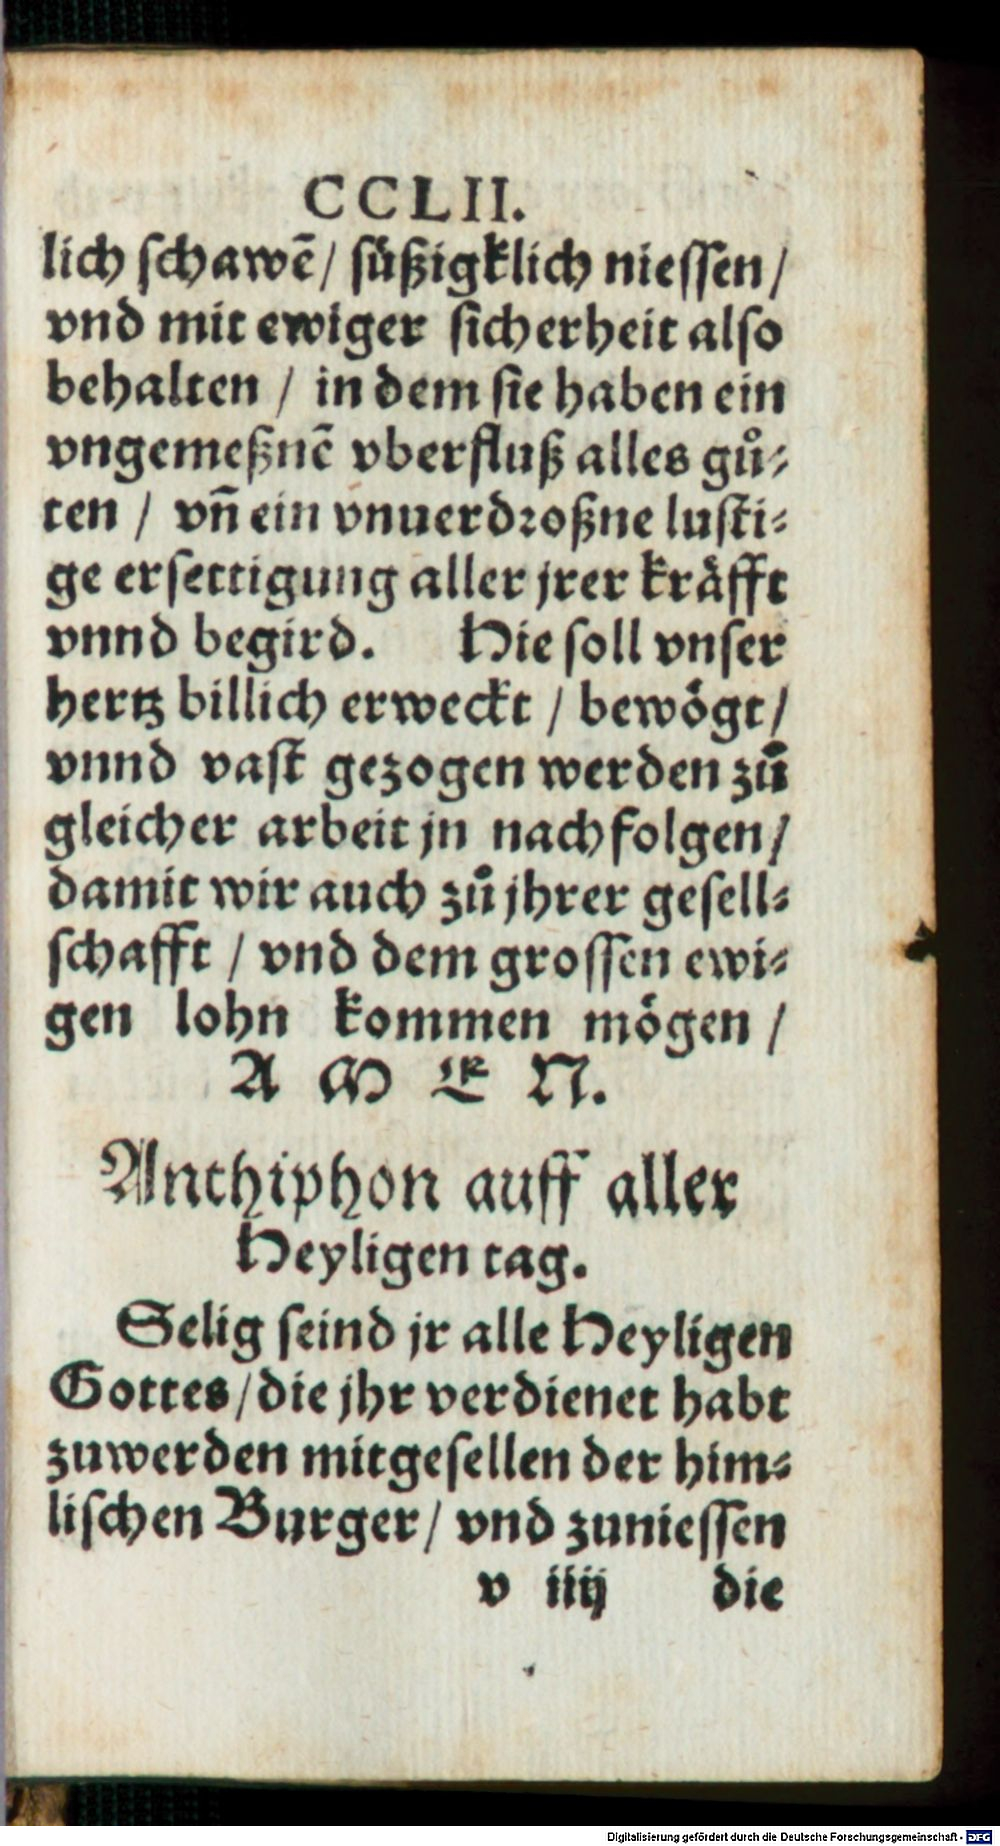 CCLII.
lich schawē/ süßigklich niessen/
vnd mit ewiger sicherheit also
behalten / in dem sie haben ein
vngemeßnē vberfluß alles gů-
ten / vñ ein vnuerdroßne lusti-
ge ersettigung aller jrer kräfft
vnnd begird. Hie soll vnser
hertz billich erweckt / bewögt/
vnnd vast gezogen werden zů
gleicher arbeit jn nachfolgen/
damit wir auch zů jhrer gesell-
schafft / vnd dem grossen ewi-
gen lohn kommen mögen /
A M E N.
Anthiphon auff aller
Heyligen tag.
Selig seind jr alle Heyligen
Gottes/die jhr verdienet habt
zuwerden mitgesellen der him-
lischen Burger/ vnd zuniessen
v iiij die
Digitalisierung gefördert durch die Deutsche Forschungsgemeinschaft - DFG